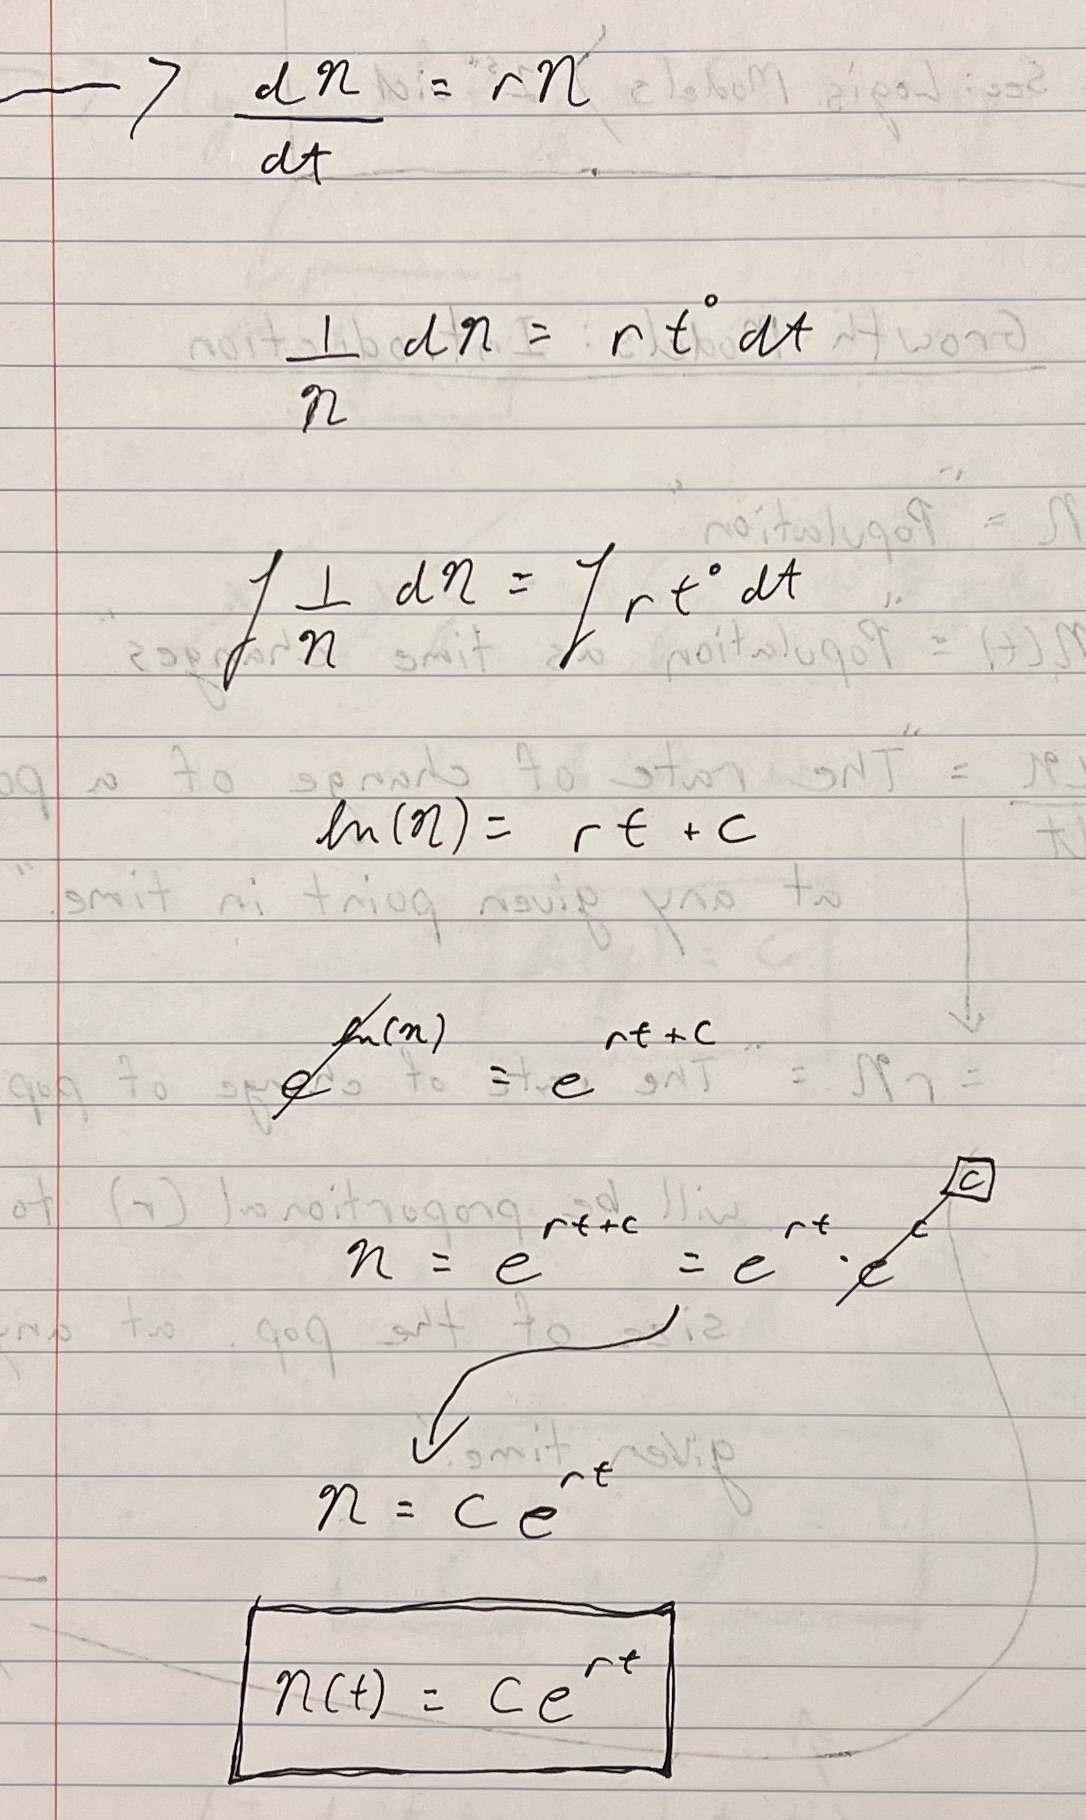 → dn/dt = rn
1/n dn = r t⁰ dt
∫ 1/n dn = ∫ r t⁰ dt
ln(n) = rt + c
e^ln(n) = e^rt+c
c
n = e^rt+c = e^rt · e^c
n = c e^rt
n(t) = c e^rt